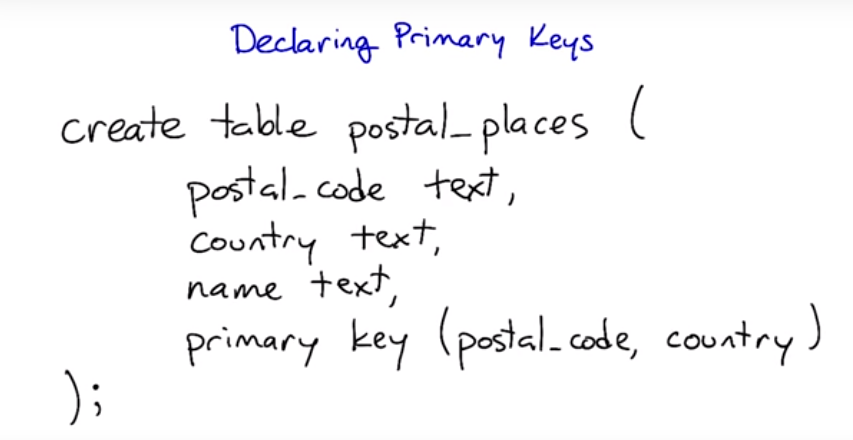 Declaring Primary Keys
create table postal_places (
postal_code text,
country text,
name text,
primary key (postal_code, country)
);